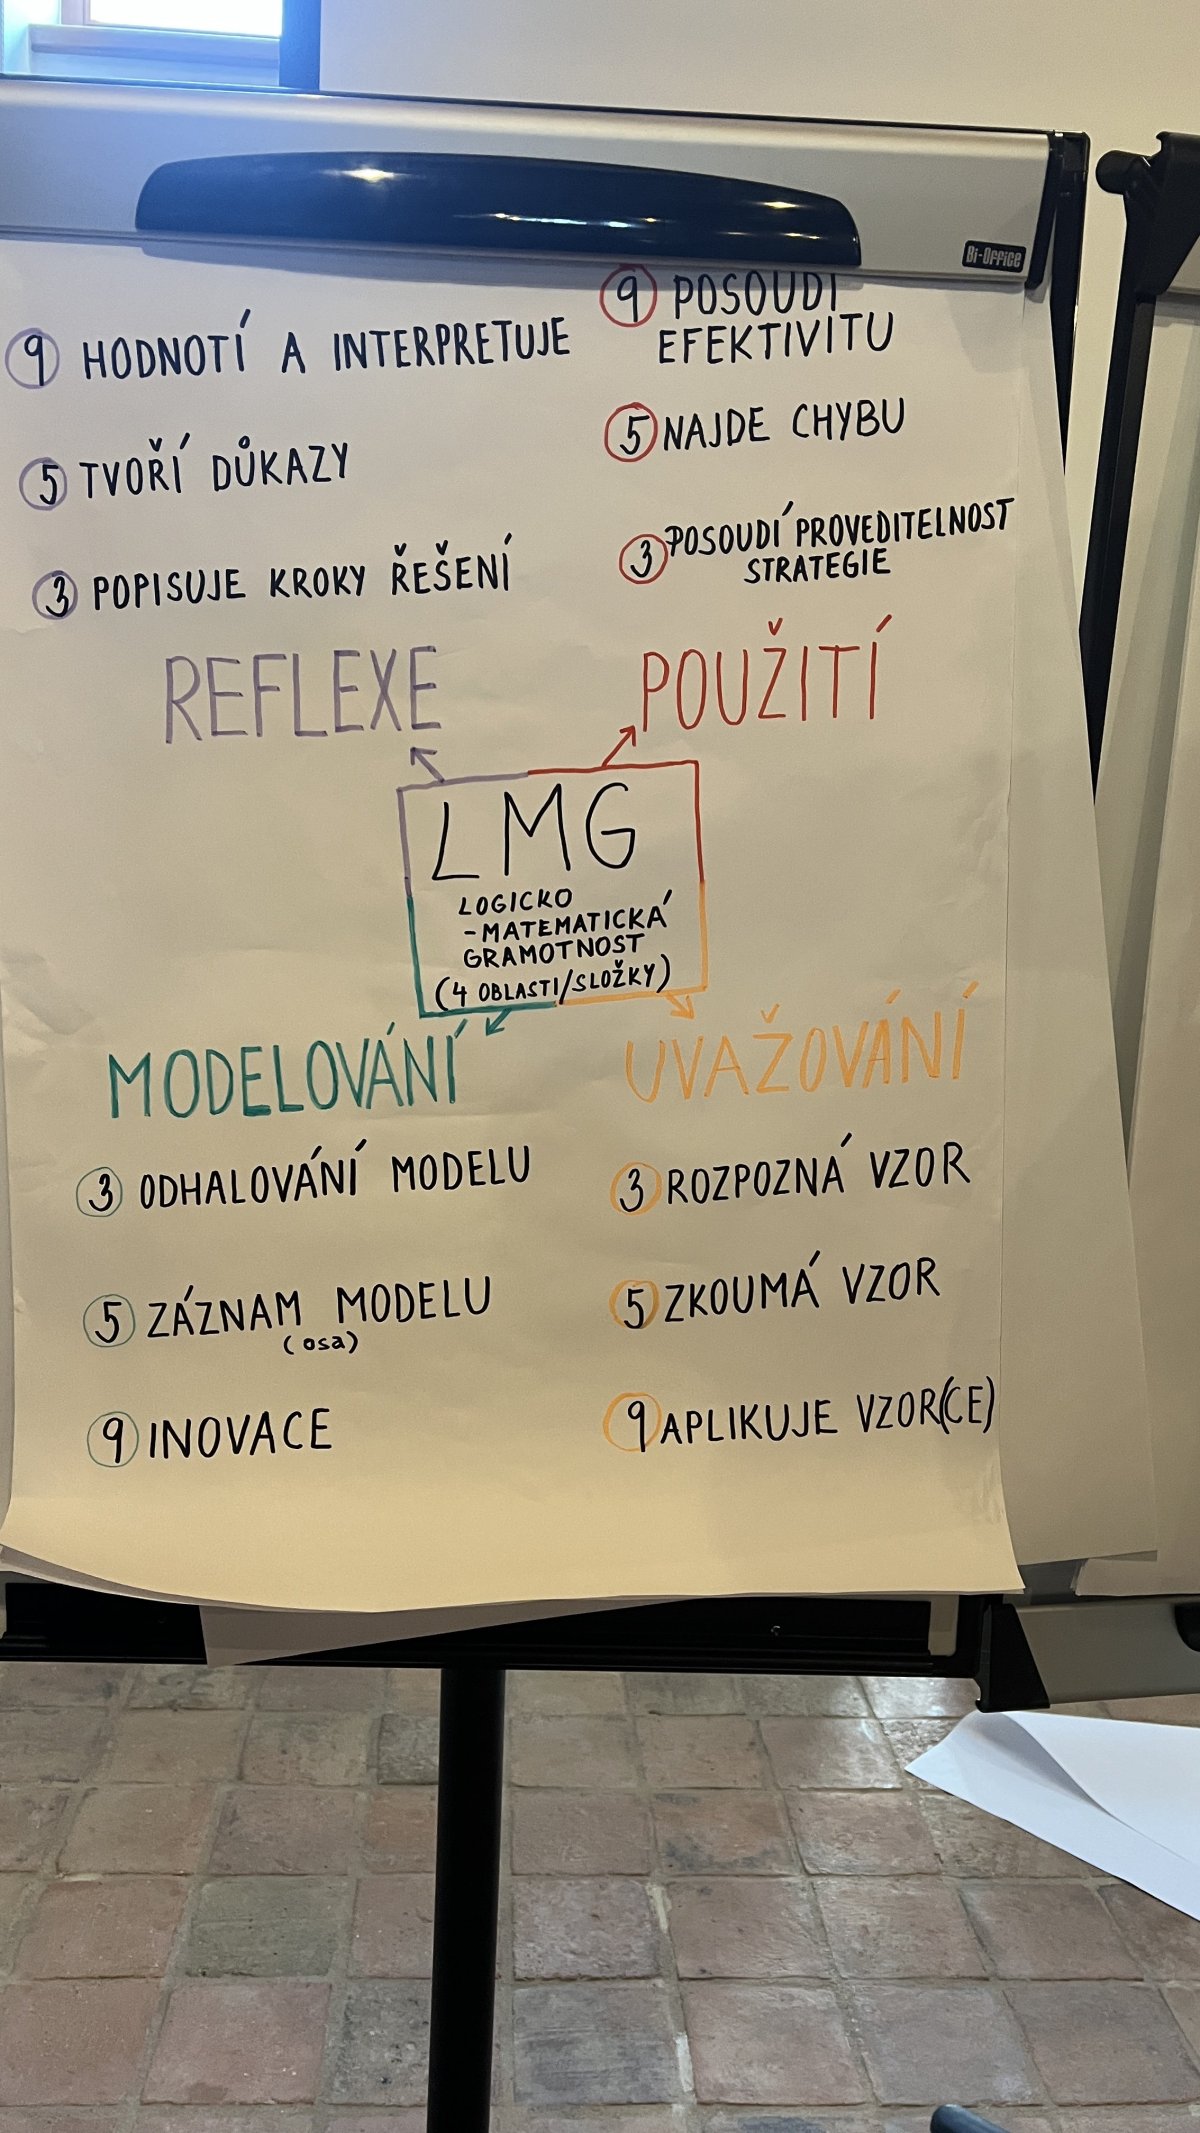 Bi-Office
9 HODNOTÍ A INTERPRETUJE
5 TVOŘÍ DŮKAZY
3 POPISUJE KROKY ŘEŠENÍ
REFLEXE
9 POSOUDÍ
EFEKTIVITU
5 NAJDE CHYBU
3 POSOUDÍ PROVEDITELNOST
STRATEGIE
POUŽITÍ
LMG
LOGICKO
-MATEMATICKÁ
GRAMOTNOST
(4 OBLASTI/SLOŽKY)
MODELOVÁNÍ
3 ODHALOVÁNÍ MODELU
5 ZÁZNAM MODELU
(osa)
9 INOVACE
UVAŽOVÁNÍ
3 ROZPOZNÁ VZOR
5 ZKOUMÁ VZOR
9 APLIKUJE VZOR(CE)